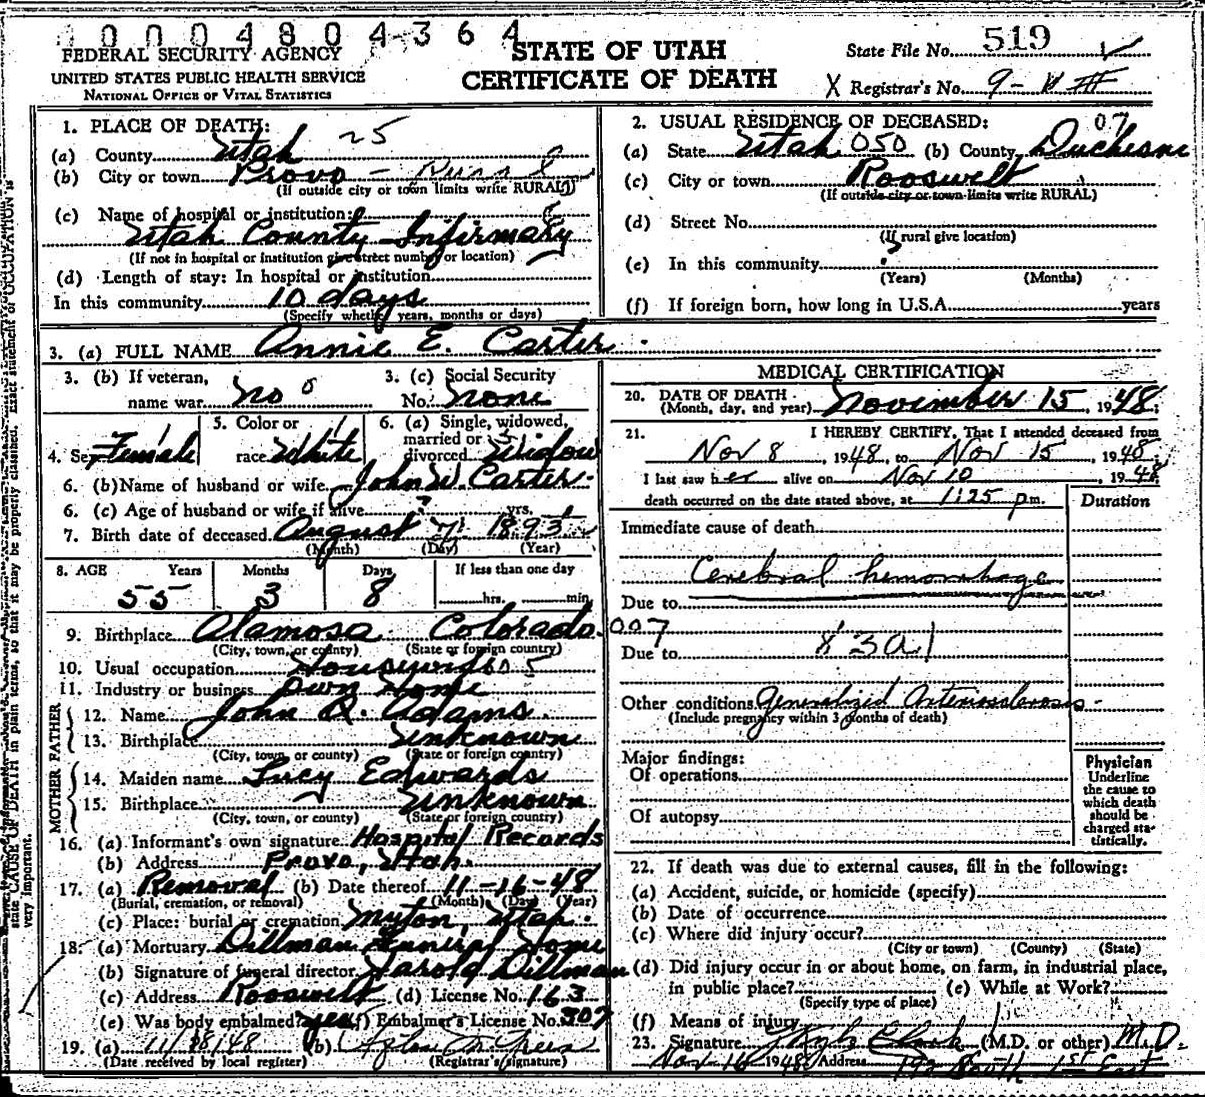 0 0 0 0 4 8 0 4 3 6 4
FEDERAL SECURITY AGENCY
UNITED STATES PUBLIC HEALTH SERVICE
NATIONAL OFFICE OF VITAL STATISTICS
STATE OF UTAH
CERTIFICATE OF DEATH
State File No. 519
X Registrar's No. 9-
1. PLACE OF DEATH: 25
(a) County Utah
(b) City or town Provo - Rural
(If outside city or town limits write RURAL)
(c) Name of hospital or institution:
Utah County Infirmary
(If not in hospital or institution give street number or location)
(d) Length of stay: In hospital or institution
In this community 10 days
(Specify whether years, months or days)
2. USUAL RESIDENCE OF DECEASED: 07
(a) State Utah 050 (b) County Duchesne
(c) City or town Roosevelt
(If outside city or town limits write RURAL)
(d) Street No.
(If rural give location)
(e) In this community
(Years) (Months)
(f) If foreign born, how long in U.S.A. years
3. (a) FULL NAME Annie E. Carter
3. (b) If veteran, name war no
3. (c) Social Security No. none
4. Sex Female
5. Color or race White
6. (a) Single, widowed, married or divorced Widow
6. (b) Name of husband or wife John W. Carter
6. (c) Age of husband or wife if alive yrs.
7. Birth date of deceased August 7, 1893
(Month) (Day) (Year)
8. AGE Years Months Days If less than one day
55 3 8 hrs. min.
9. Birthplace Alamosa Colorado
(City, town, or county) (State or foreign country)
10. Usual occupation Housewife
11. Industry or business Own Home
FATHER
12. Name John Q. Adams
13. Birthplace Unknown
(City, town, or county) (State or foreign country)
MOTHER
14. Maiden name Lucy Edwards
15. Birthplace Unknown
(City, town, or county) (State or foreign country)
16. (a) Informant's own signature Hospital Records
(b) Address Provo, Utah
17. (a) Removal (b) Date thereof 11-16-48
(Burial, cremation, or removal) (Month) (Day) (Year)
(c) Place: burial or cremation Myton, Utah
18. (a) Mortuary Dillman Funeral Home
(b) Signature of funeral director Harold Dillman
(c) Address Roosevelt (d) License No. 163
(e) Was body embalmed? yes (f) Embalmer's License No. 307
19. (a) 11/18/48 (b)
(Date received by local register) (Registrar's signature)
MEDICAL CERTIFICATION
20. DATE OF DEATH
(Month, day, and year) November 15, 1948
21. I HEREBY CERTIFY, That I attended deceased from
Nov 8, 1948, to Nov 15, 1948
I last saw her alive on Nov 10, 1948
death occurred on the date stated above, at 1:25 pm. Duration
Immediate cause of death
Cerebral hemorrhage
Due to
007
Due to
Other conditions Generalized Arteriosclerosis
(Include pregnancy within 3 months of death)
Major findings:
Of operations
Of autopsy
Physician
Underline
the cause to
which death
should be
charged sta-
tistically.
22. If death was due to external causes, fill in the following:
(a) Accident, suicide, or homicide (specify)
(b) Date of occurrence
(c) Where did injury occur?
(City or town) (County) (State)
(d) Did injury occur in or about home, on farm, in industrial place,
in public place? (e) While at Work?
(Specify type of place)
(f) Means of injury
23. Signature Clark (M.D. or other) M.D.
Nov 16 1948 Address 192 South 1st East
state CAUSE OF DEATH in plain terms, so that it may be properly classified. Exact statement of OCCUPATION is
very important.